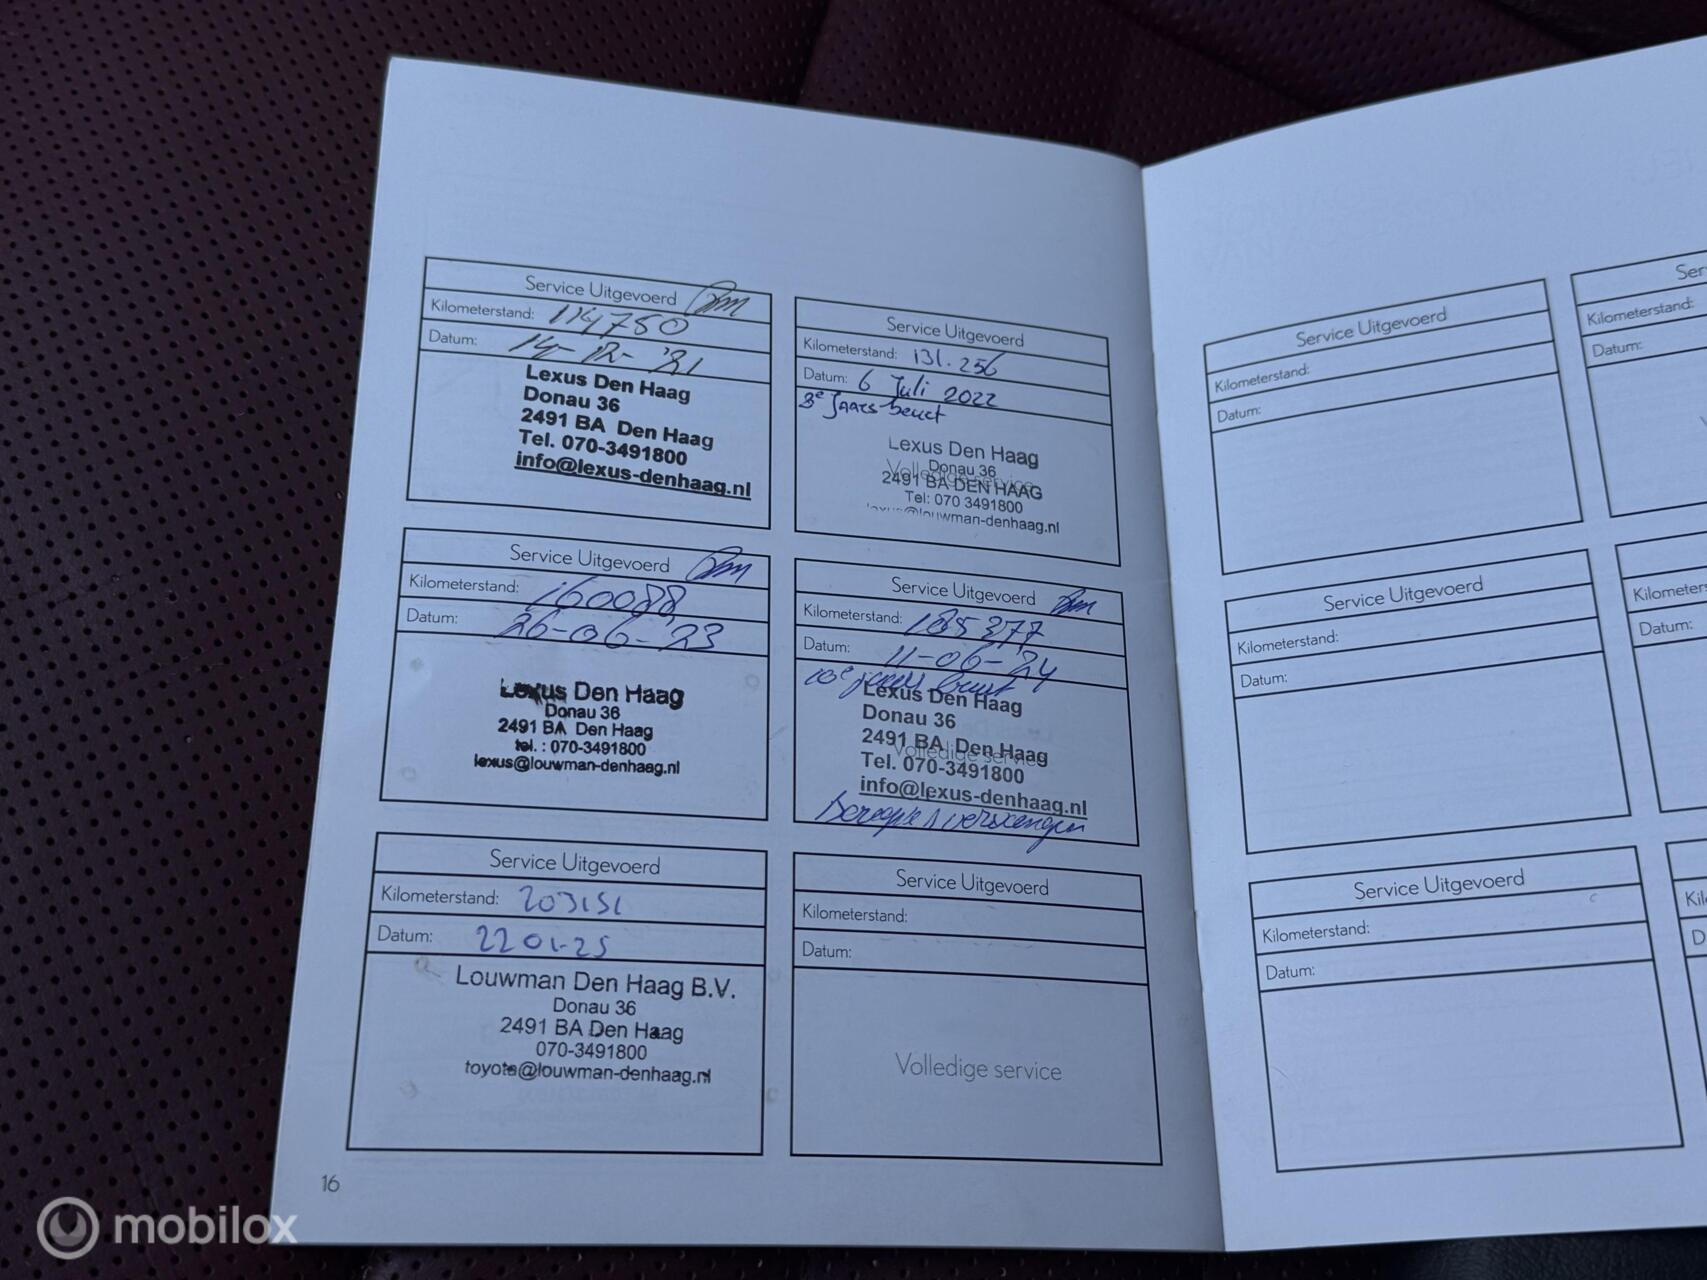 Service Uitgevoerd
Kilometerstand: 114780
Datum: 14-12-'21
Lexus Den Haag
Donau 36
2491 BA Den Haag
Tel. 070-3491800
info@lexus-denhaag.nl
Service Uitgevoerd
Kilometerstand: 131.256
Datum: 6 Juli 2022
3e Jaars beurt
Lexus Den Haag
Donau 36
Volledige service
2491 BA DEN HAAG
Tel: 070 3491800
lexus@louwman-denhaag.nl
Service Uitgevoerd
Kilometerstand: 160088
Datum: 26-06-23
Lexus Den Haag
Donau 36
2491 BA Den Haag
tel. : 070-3491800
lexus@louwman-denhaag.nl
Service Uitgevoerd
Kilometerstand: 185377
Datum: 11-06-24
10e jaars beurt
Lexus Den Haag
Donau 36
2491 BA Den Haag
Volledige service
Tel. 070-3491800
info@lexus-denhaag.nl
Service Uitgevoerd
Kilometerstand: 203151
Datum: 22 01-25
Louwman Den Haag B.V.
Donau 36
2491 BA Den Haag
070-3491800
toyota@louwman-denhaag.nl
Service Uitgevoerd
Kilometerstand:
Datum:
Volledige service
16
Service Uitgevoerd
Kilometerstand:
Datum:
Ser
Kilometerstand:
Datum:
Service Uitgevoerd
Kilometerstand:
Datum:
Kilometers
Datum:
Service Uitgevoerd
Kilometerstand:
Datum:
Kil
D
mobilox